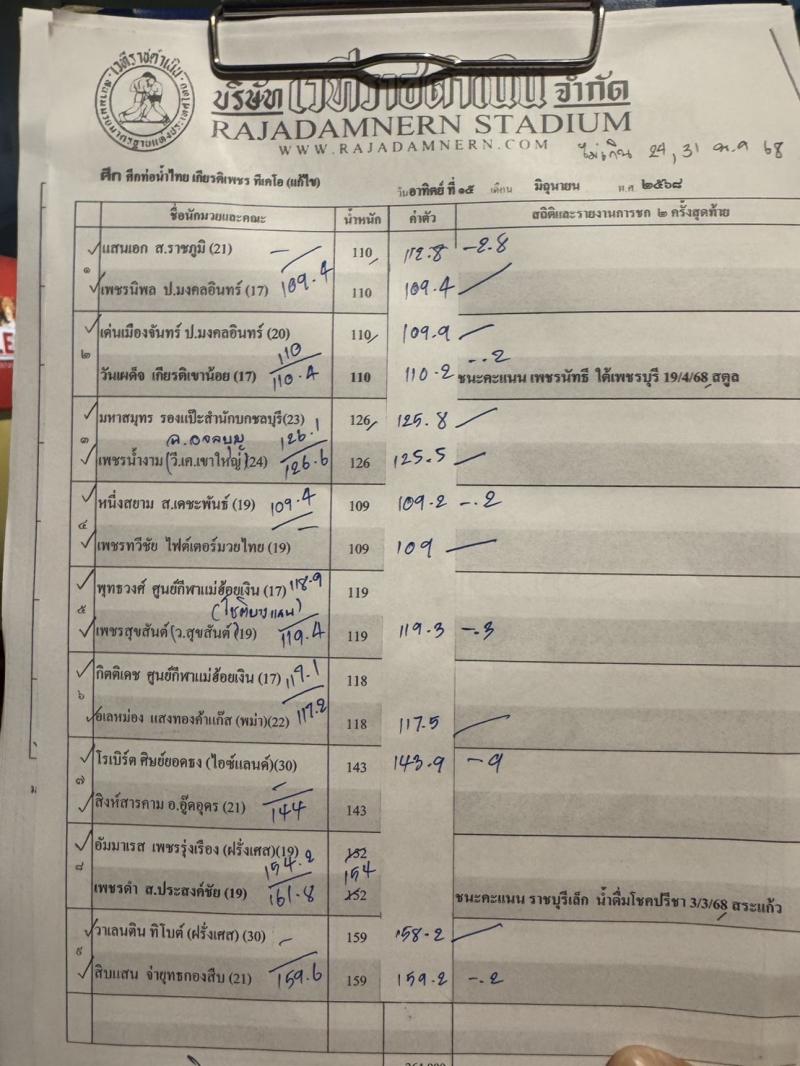 บริษัท เวทีราชดำเนิน จำกัด
RAJADAMNERN STADIUM
WWW.RAJADAMNERN.COM
ไม่เกิน 29, 31 พ.ค 68
ศึก ศึกท่อน้ำไทย เกียรติเพชร ทีเคโอ (แก้ไข)
วันอาทิตย์ ที่ ๑๕ เดือน มิถุนายน พ.ศ. ๒๕๖๘
ชื่อนักมวยและคณะ น้ำหนัก ค่าตัว สถิติและรายงานการชก ๒ ครั้งสุดท้าย
แสนเอก ส.ราชภูมิ (21) 110 112.8 -2.8
๑
เพชรนิพล ป.มงคลอินทร์ (17) 109.4 110 109.4
เด่นเมืองจันทร์ ป.มงคลอินทร์ (20) 110 109.9
๒
วันเผด็จ เกียรติเขาน้อย (17) 110 110.4 110 110.2 -.2 ชนะคะแนน เพชรนัทธี ใต้เพชรบุรี 19/4/68 สตูล
มหาสมุทร รองแป๊ะสำนักบกชลบุรี(23) 126.1 126 125.8
๓
เพชรน้ำงาม (วี.เค.เขาใหญ่) 24) 126.6 126 125.5
หนึ่งสยาม ส.เดชะพันธ์ (19) 109.4 109 109.2 -.2
๔
เพชรทวีชัย ไฟต์เตอร์มวยไทย (19) 109 109
พุทธวงศ์ ศูนย์กีฬาแม่ฮ้อยเงิน (17) 118.9 119
๕
(โชติบางแสน)
เพชรสุขสันต์ (ว.สุขสันต์) 19) 119.4 119 119.3 -.3
กิตติเดช ศูนย์กีฬาแม่ฮ้อยเงิน (17) 117.1 118
๖
อเลหม่อง แสงทองค้าแก๊ส (พม่า)(22) 117.2 118 117.5
โรเบิร์ต ศิษย์ยอดธง (ไอซ์แลนด์)(30) 143 143.9 -9
๗
สิงห์สารคาม อ.อู๊ดอุดร (21) 144 143
อัมมาเรส เพชรรุ่งเรือง (ฝรั่งเศส)(19) 154.2 152 154
๘
เพชรดำ ส.ประสงค์ชัย (19) 161.8 152 ชนะคะแนน ราชบุรีเล็ก น้ำดื่มโชคปรีชา 3/3/68 สระแก้ว
วาเลนติน ทิโบต์ (ฝรั่งเศส) (30) 159 158.2
๙
สิบแสน จ่ายุทธกองสืบ (21) 159.6 159 159.2 -.2